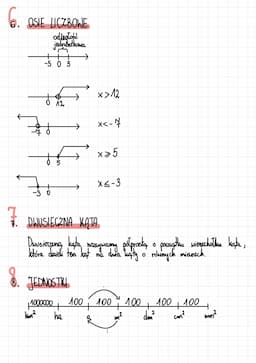 6. OSIE LICZBOWE
odległość
jednostkowa
-3 0 3
0 12
x>12
-7 0
x<-7
0 5
x⩾5
-3 0
x≤-3
7. DWUSIECZNA KĄTA
Dwusieczną kąta nazywamy półprostą o początku wierzchołku kąta,
która dzieli ten kąt na dwa kąty o równych miarach.
8. JEDNOSTKI
1000000 100 100 100 100 100
km² ha a m² dm² cm² mm²